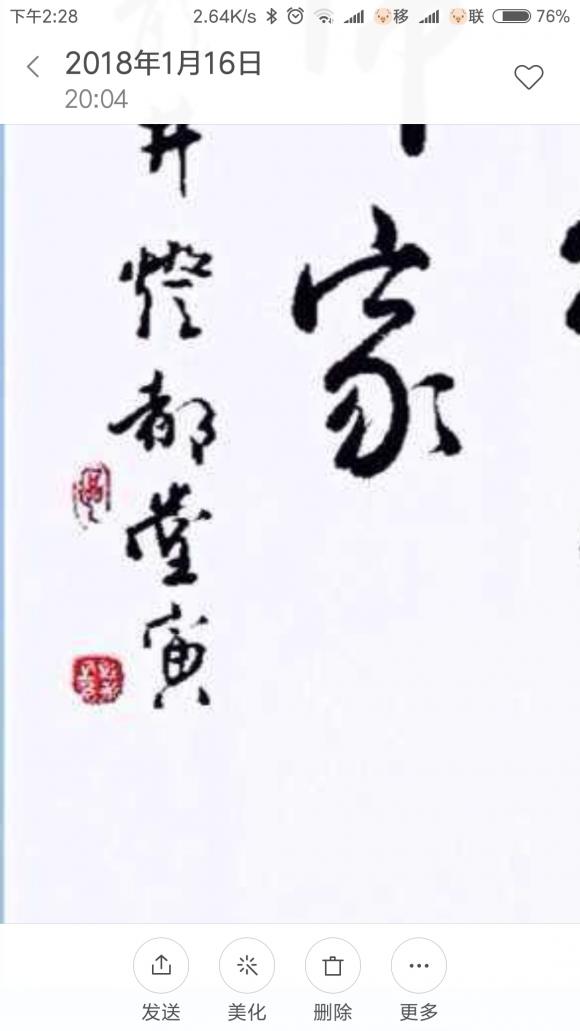 下午2:28 2.64K/s 移 联 76%
2018年1月16日
20:04
家
井燈都堂寅
发送 美化 删除 更多